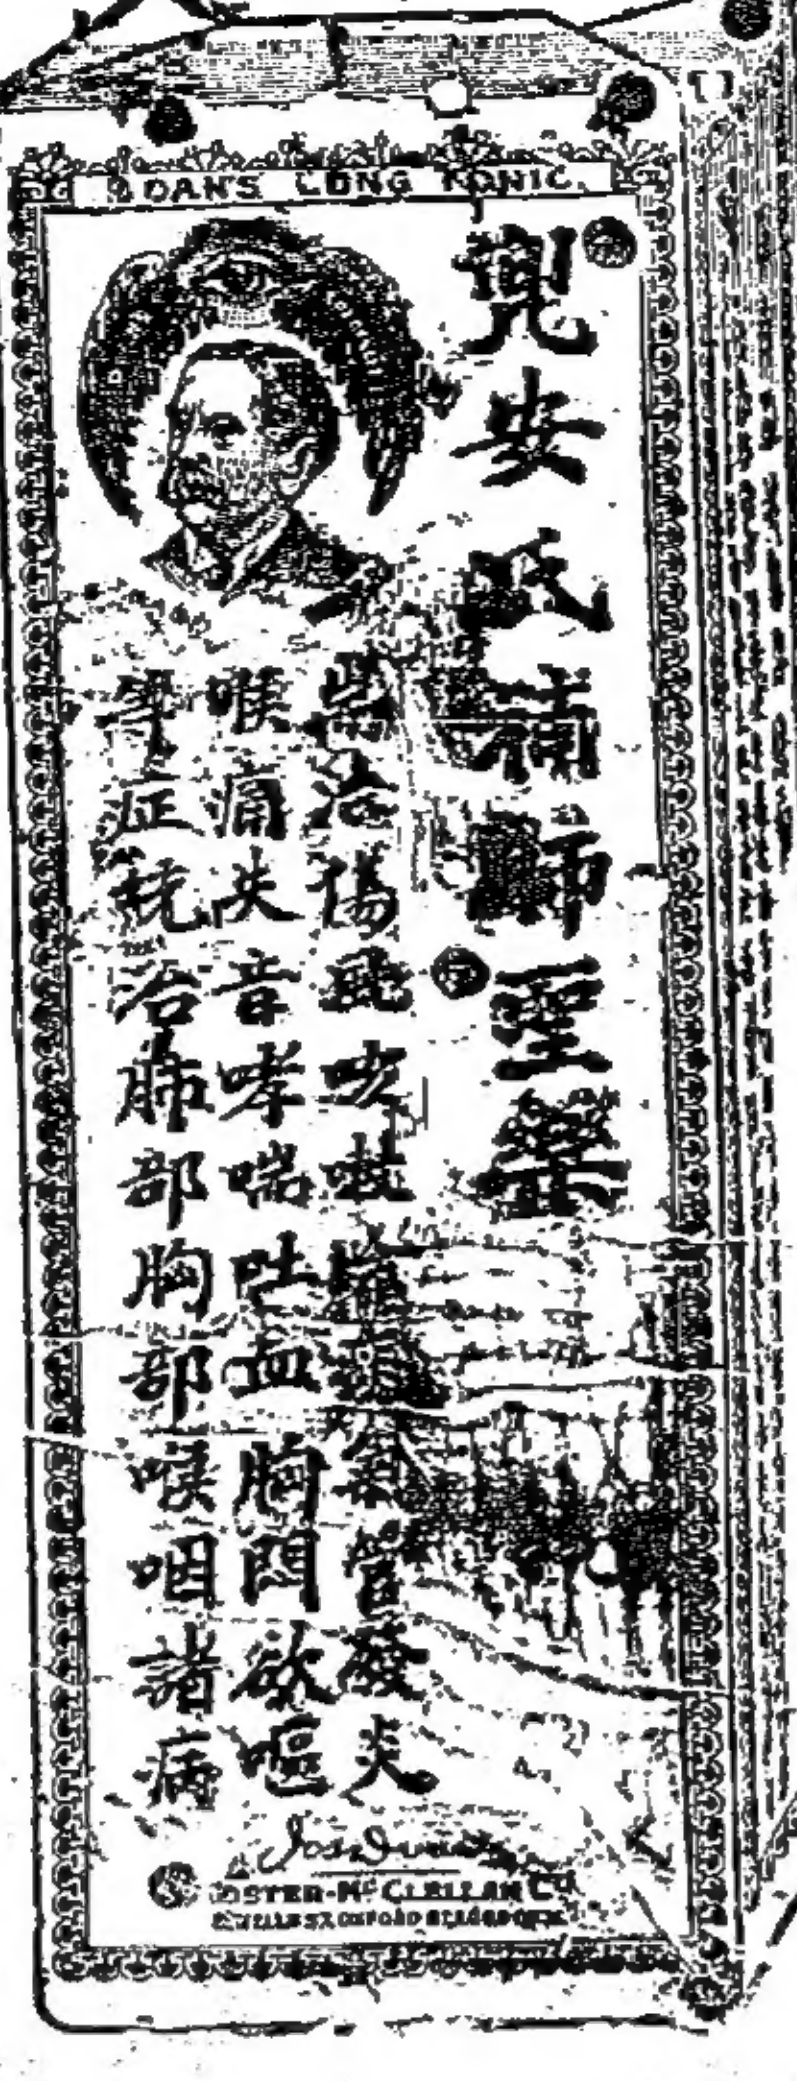 DOAN'S LUNG TONIC.
兜安氏補肺聖藥
治傷風咳嗽氣管發炎
喉痛失音哮喘吐血胸悶欲嘔
等症統治肺部胸部喉咽諸病
FOSTER-McCLELLAN Co.